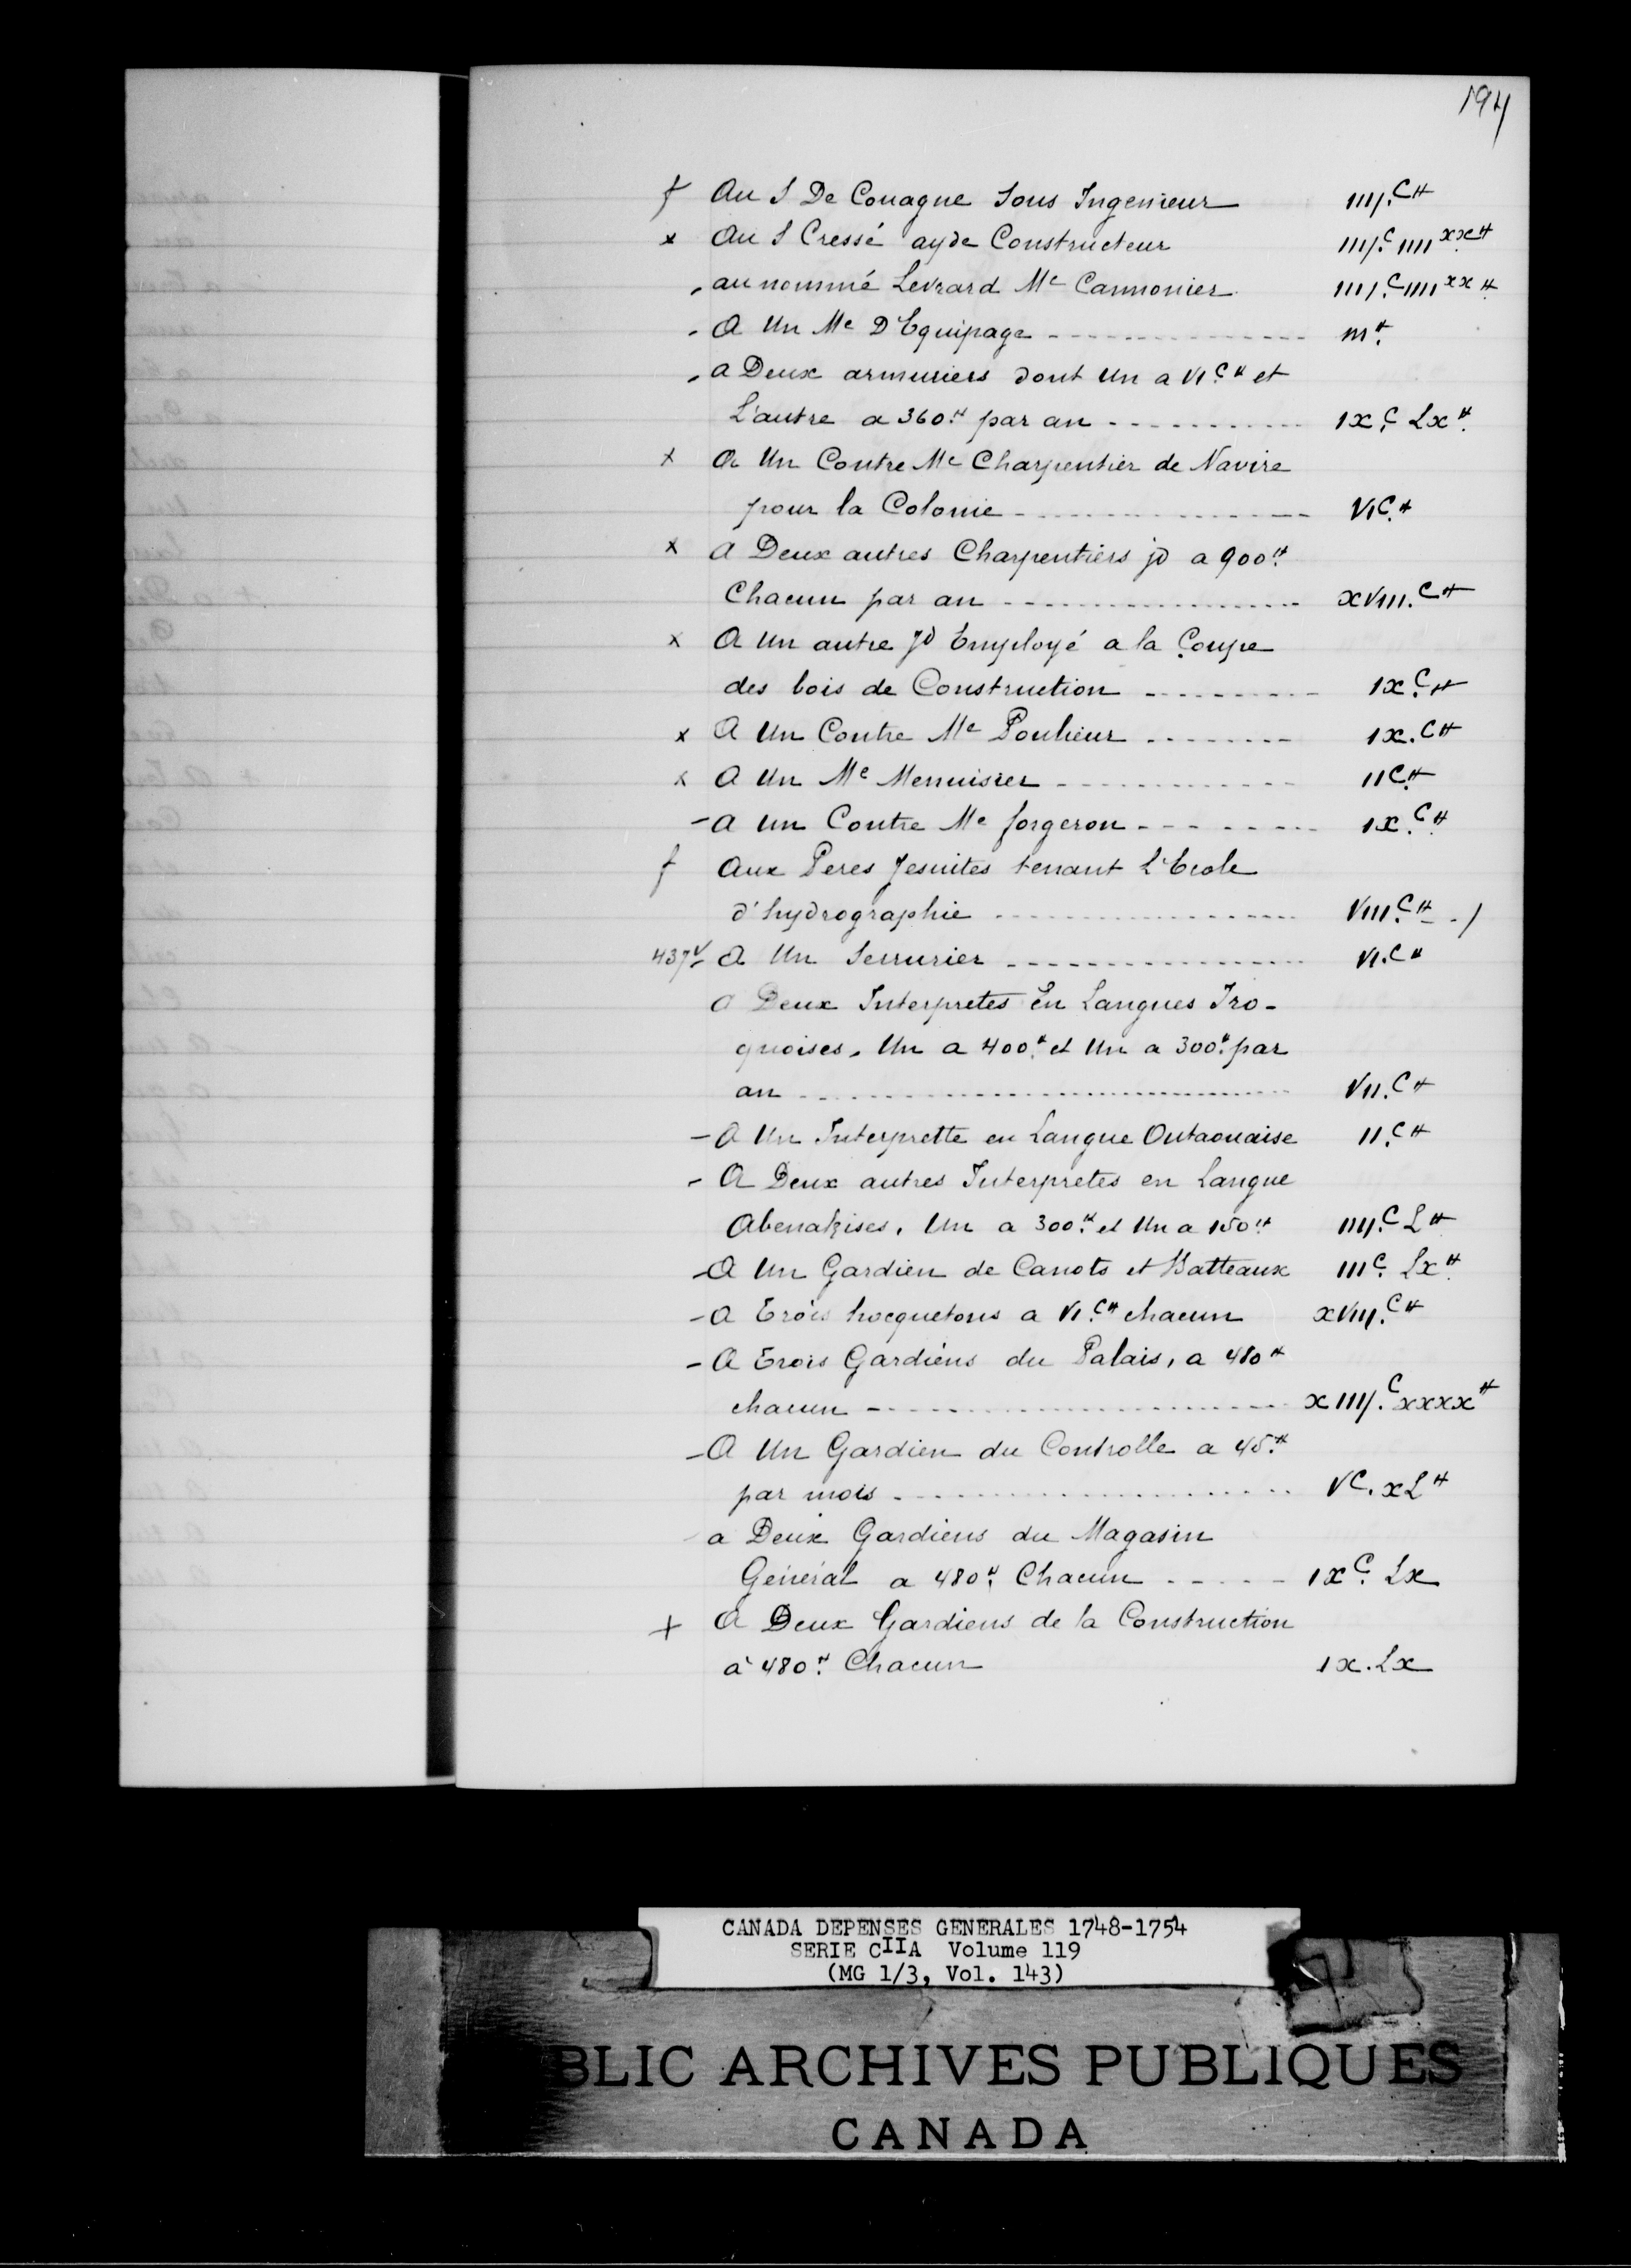 194
f Au S De Couagne Sous Ingenieur IIIJ.C ₶
x Au S Cressé ayde Constructeur IIIJ.C IIII XX ₶
, au nommé Levrard Me Cannonier IIIJ.C IIII XX ₶
- A Un Me D'Equipage ---------- M ₶
, a Deux armuriers dont Un a VI.C ₶ et
L'autre a 360 ₶ par an ---------- IX.C Lx ₶
x A Un Contre Me Charpentier de Navire
pour la Colonie ---------- VI C. ₶
x A Deux autres Charpentiers jd a 900 ₶
Chacun par an ---------- XVIII.C ₶
x A Un autre jd Employé a la Coupe
des bois de Construction ---------- IX.C ₶
x A Un Contre Me Poulieur ---------- IX.C ₶
x A Un Me Menuisier ---------- II C. ₶
- A un Contre Me forgeron ---------- IX.C ₶
f Aux Peres Jesuites tenant L'Ecole
d'hydrographie ---------- VIII.C ₶ -/
437v - A Un Serrurier ---------- VI.C ₶
a Deux Interpretes En Langues Iro-
quoises, Un a 400 ₶ et Un a 300 ₶ par
an ---------- VII.C ₶
- A Un Interprette en Langue Outaouaise II.C ₶
- A Deux autres Interpretes en Langue
Abenakises, Un a 300 ₶ et Un a 150 ₶ IIIJ.C L ₶
- A Un Gardien de Canots et Batteaux III C. Lx ₶
- A Trois hocquetons a VI.C ₶ chacun XVIIJ.C ₶
- A Trois Gardiens du Palais, a 480 ₶
chacun ---------- X IIIJ.C XXXX ₶
- A Un Gardien du Controlle a 45 ₶
par mois ---------- V C. XL ₶
a Deux Gardiens du Magasin
Général a 480 ₶ Chacun ---------- IX C. Lx
+ A Deux Gardiens de la Construction
à 480 ₶ Chacun IX.Lx
CANADA DEPENSES GENERALES 1748-1754
SERIE CIIA Volume 119
(MG 1/3, Vol. 143)
BLIC ARCHIVES PUBLIQUES
CANADA